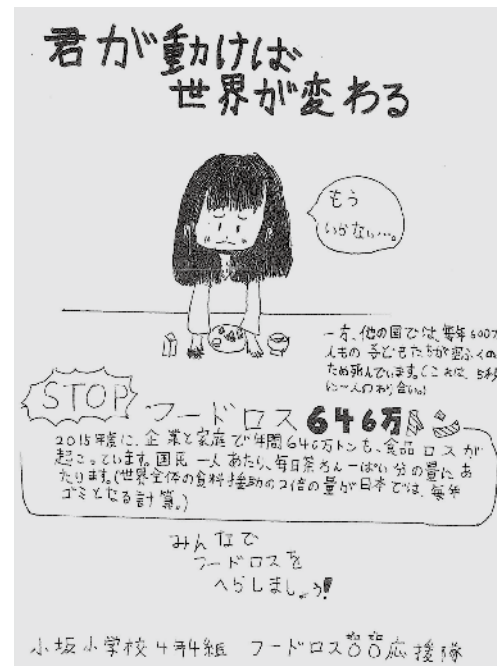 君が動けば
世界が変わる
もう
いらない…。
一方、他の国では、毎年500万
人もの子どもたちが空ふくの
ため死んでいます。(これは、5秒
に一人のわり合い。)
STOP フードロス646万トン
2015年度に、企業と家庭で年間646万トンも、食品ロスが
起こっています。国民一人あたり、毎日茶わん一ぱい分の量にあ
たります。(世界全体の食料援助の2倍の量が日本では、毎年
ゴミとなる計算。)
みんなで
フードロスを
へらしましょう!
小坂小学校4年4組 フードロス 応援隊